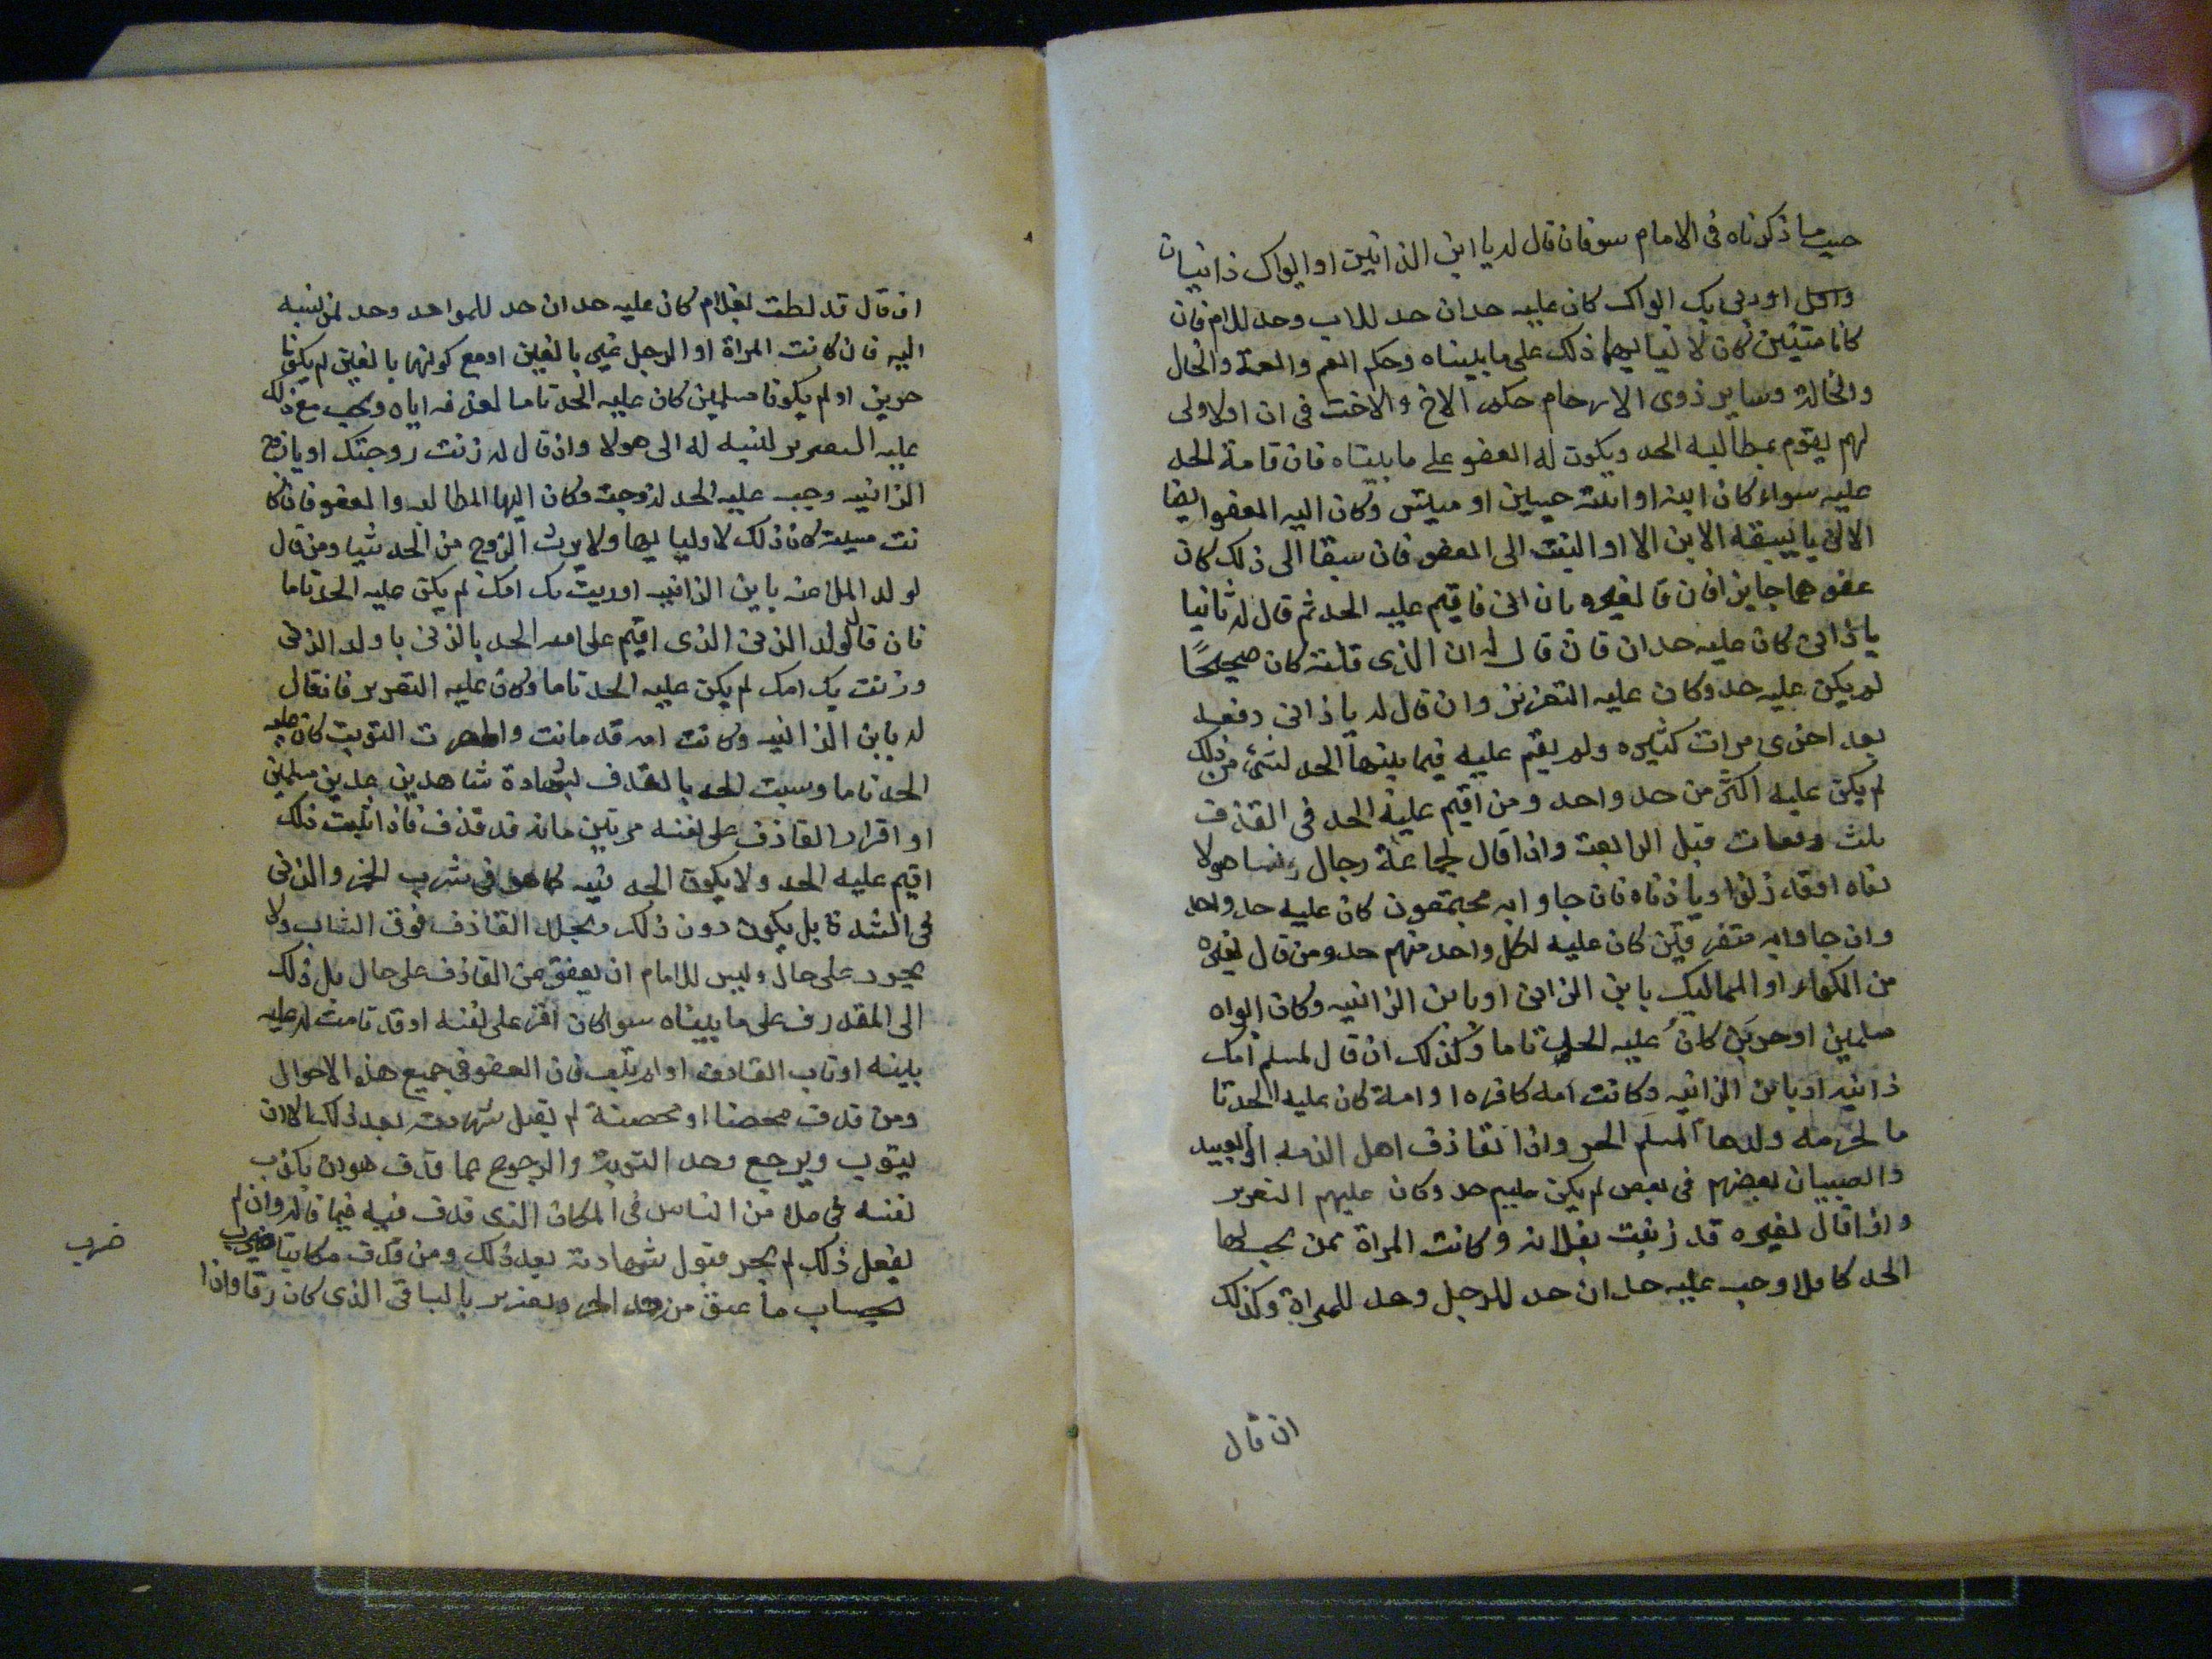 حسب ما ذكرناه فى الامام سو فان قال له يا ابن الزانيين او ابواك زانيان
او زنى بك ابواك كان عليه حدان حد للاب وحد للام فان
كانا ميتين كان لاوليايهما ذلك على ما بيناه وحكم العم والعمة والخال
والخالة وساير ذوى الارحام حكم الاخ والاخت فى ان اولا ولى
لهم يقوم بمطالبة الحد ويكون له العفو على ما بيناه فان قامة الحد
عليه سواء كان ابنه او ابنته حيين او ميتين وكان اليه العفو ايضا
الا ان يسبقه الابن الا او البنت الى العفو فان سبقا الى ذلك كان
عفو هما جايزا فان قا لغيره يا زانى فاقيم عليه الحد ثم قال له ثانيا
يا زانى كان عليه حدان فان قال له ان الذى قلته كان صحيحًا
لم يكن عليه حد وكان عليه التعزير وان قال له يا زانى دفعه
بعد اخرى مرات كثيره ولم يقم عليه فيما بينها الحد لشئ من ذلك
لم يكن عليه اكثر من حد واحد ومن اقيم عليه الحد فى القذف
ثلث دفعات قتل الرابعة واذا قال لجماعة رجال ونسا هولا
زناه او قد زنوا او يا زناه فان جاوا به مجتمعون كان عليه حد واحد
وان جاوا به متفرقين كان عليه لكل واحد منهم حد ومن قال لغيره
من الكفار او المماليك يا بن الزانى او يا بن الزانيه وكان ابواه
مسلمين او حرين كان عليه الحد تاما وكذلك ان قال لمسلم امك
زانيه او يا بن الزانيه وكانت امه كافره او امة كان عليه الحد تا
ما لحرمه ولدها المسلم الحر واذا تقاذف اهل الذمه او العبيد
والصبيان بعضهم فى بعض لم يكن عليهم حد وكان عليهم التعزير
واذا قال لغيره قد زنيت بفلانه وكانت المراة ممن يجب لها
الحد كاملا وجب عليه حدان حد للرجل وحد للمراة وكذلك
ان قال
ان قال قد لطت بغلام كان عليه حدان حد للمواجه وحد لمن نسبه
اليه فان كانت المراة او الرجل غير بالغين او مع كونهما بالغين لم يكونا
حرين او لم يكونا مسلمين كان عليه الحد تاما لقذفه اياه ويجب مع ذلك
عليه التعزير لنسبه له الى هولا وان قال له زنت زوجتك او يا زوج
الزانيه وجب عليه الحد لزوجته وكان اليها المطالبه والعفو فان كا
نت ميته كان ذلك لاوليايها ولا يرث الزوج من الحد شيا ومن قال
لولد الملاعنه يا بن الزانيه او زنيت بك امك لم يكن عليه الحد تاما
فان قال لولد الزنى الذى اقيم على امه الحد بالزنى يا ولد الزنى
وزنت بك امك لم يكن عليه الحد تاما وكان عليه التعزير فان قال
له يا بن الزانيه وكانت امه قد مانت واظهرت التوبة كان عليه
الحد تاما ويثبت الحد بالقذف بشهادة شاهدين عدلين مسلمين
او اقرار القاذف على نفسه مرتين بانه قد قذف فاذا ثبت ذلك
اقيم عليه الحد ولا يكون الحد فيه كما هو فى شرب الخمر والزنى
فى الشدة بل يكون دون ذلك ويجلد القاذف فوق الثياب ولا
يجرد على حال وليس للامام ان يعفو عن القاذف على حال بل ذلك
الى المقذوف على ما بيناه سوا كان اقر على نفسه او قد قامت له عليه
بينه او تاب القاذف او لم يتب فان العفو فى جميع هذه الاحوال
ومن قذف محصنا او محصنة لم يقبل شهادته بعد ذلك الا ان
يتوب ويرجع وحد التوبة والرجوع عما قذف هو ان يكذب
نفسه فى ملا من الناس فى المكان الذى قذف فيه فيما قاله وان لم
يفعل ذلك لم يجز قبول شهادته بعد ذلك ومن قذف مكاتبا ضرب
بحساب ما عتق من حد الحر ويعزير بالباقى الذى كان رقا واذا
ضرب